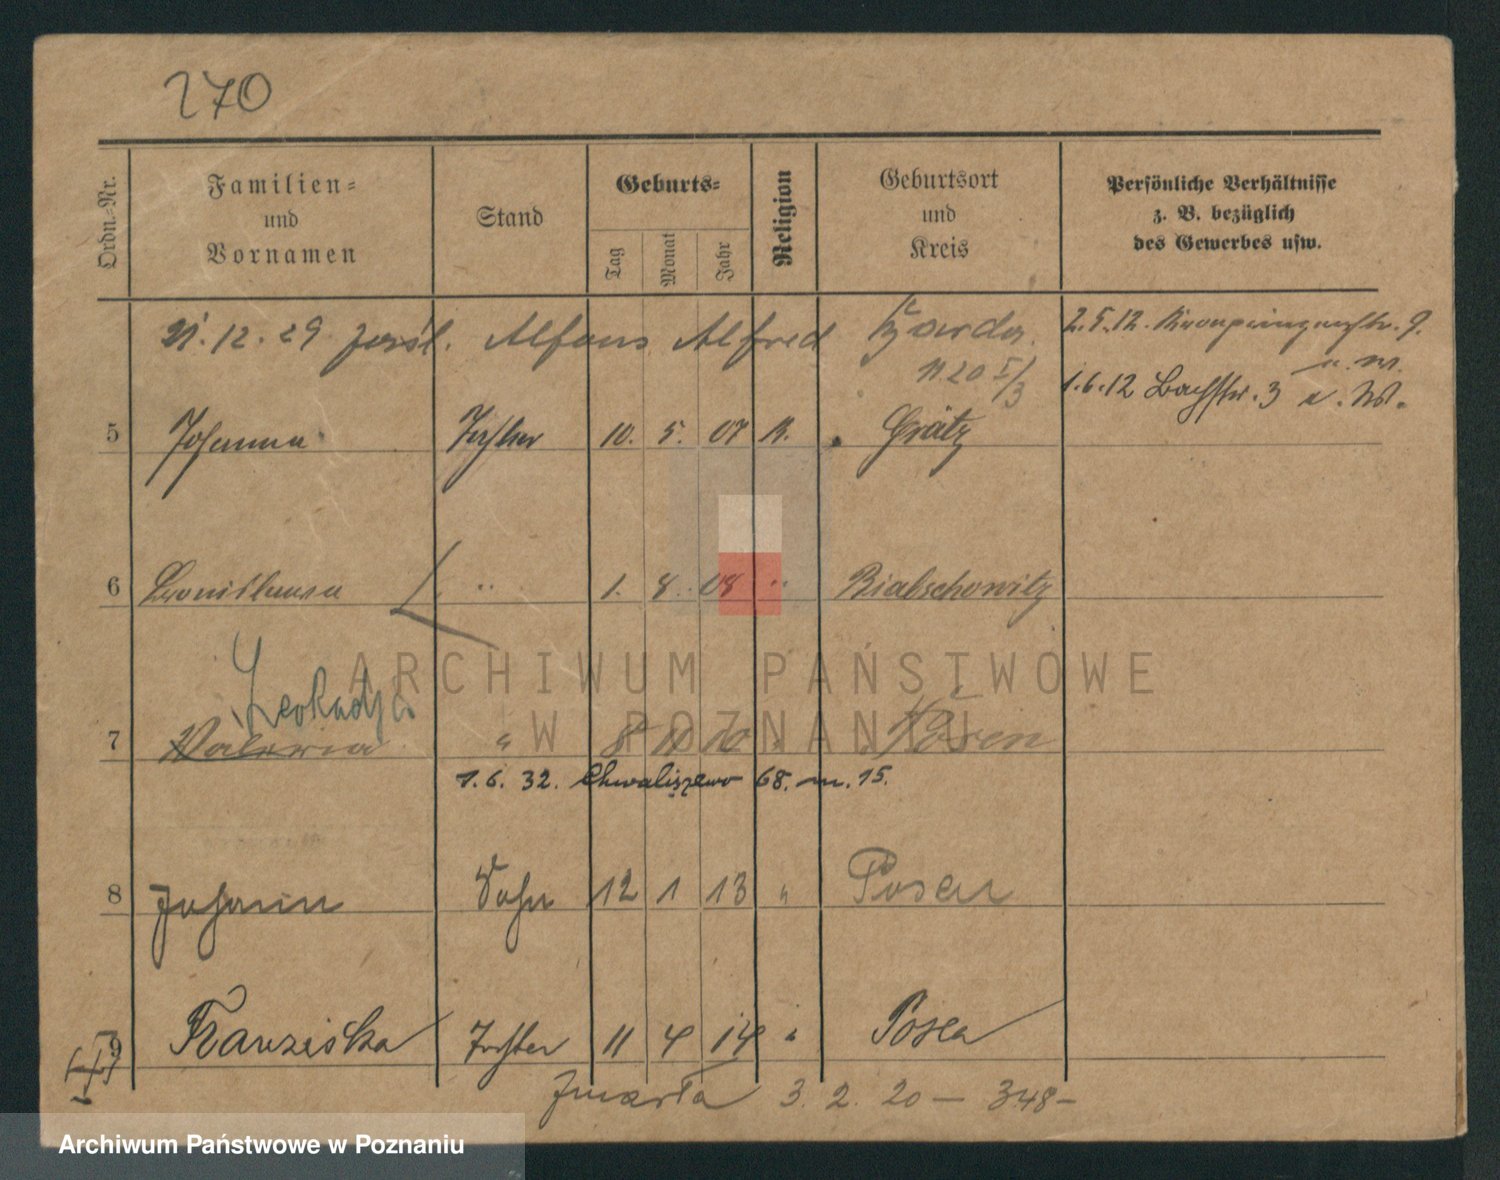 270
Ordn.-Nr.
Familien-
und
Vornamen
Stand
Geburts-
Tag
Monat
Jahr
Religion
Geburtsort
und
Kreis
Persönliche Verhältnisse
z. B. bezüglich
des Gewerbes usw.
12. 29 Alfons Alfred
2.5.12. Kronprinzenstr. 9.
1.6.12 Bachstr. 3
5 Johanna Tochter 10. 5. 07 K. Grätz
6 Bronislawa " 1. 8. 08 " Bialschowitz
Leokadja
7 Valeria " 8 11 10 " Posen
1. 6. 32. Chwaliszewo 68. m. 15.
8 Johann Sohn 12 1 13 " Posen
9 Franziska Tochter 11 4 14 " Posen
Zmarła 3. 2. 20 — 348 —
ARCHIWUM PAŃSTWOWE
W POZNANIU
Archiwum Państwowe w Poznaniu